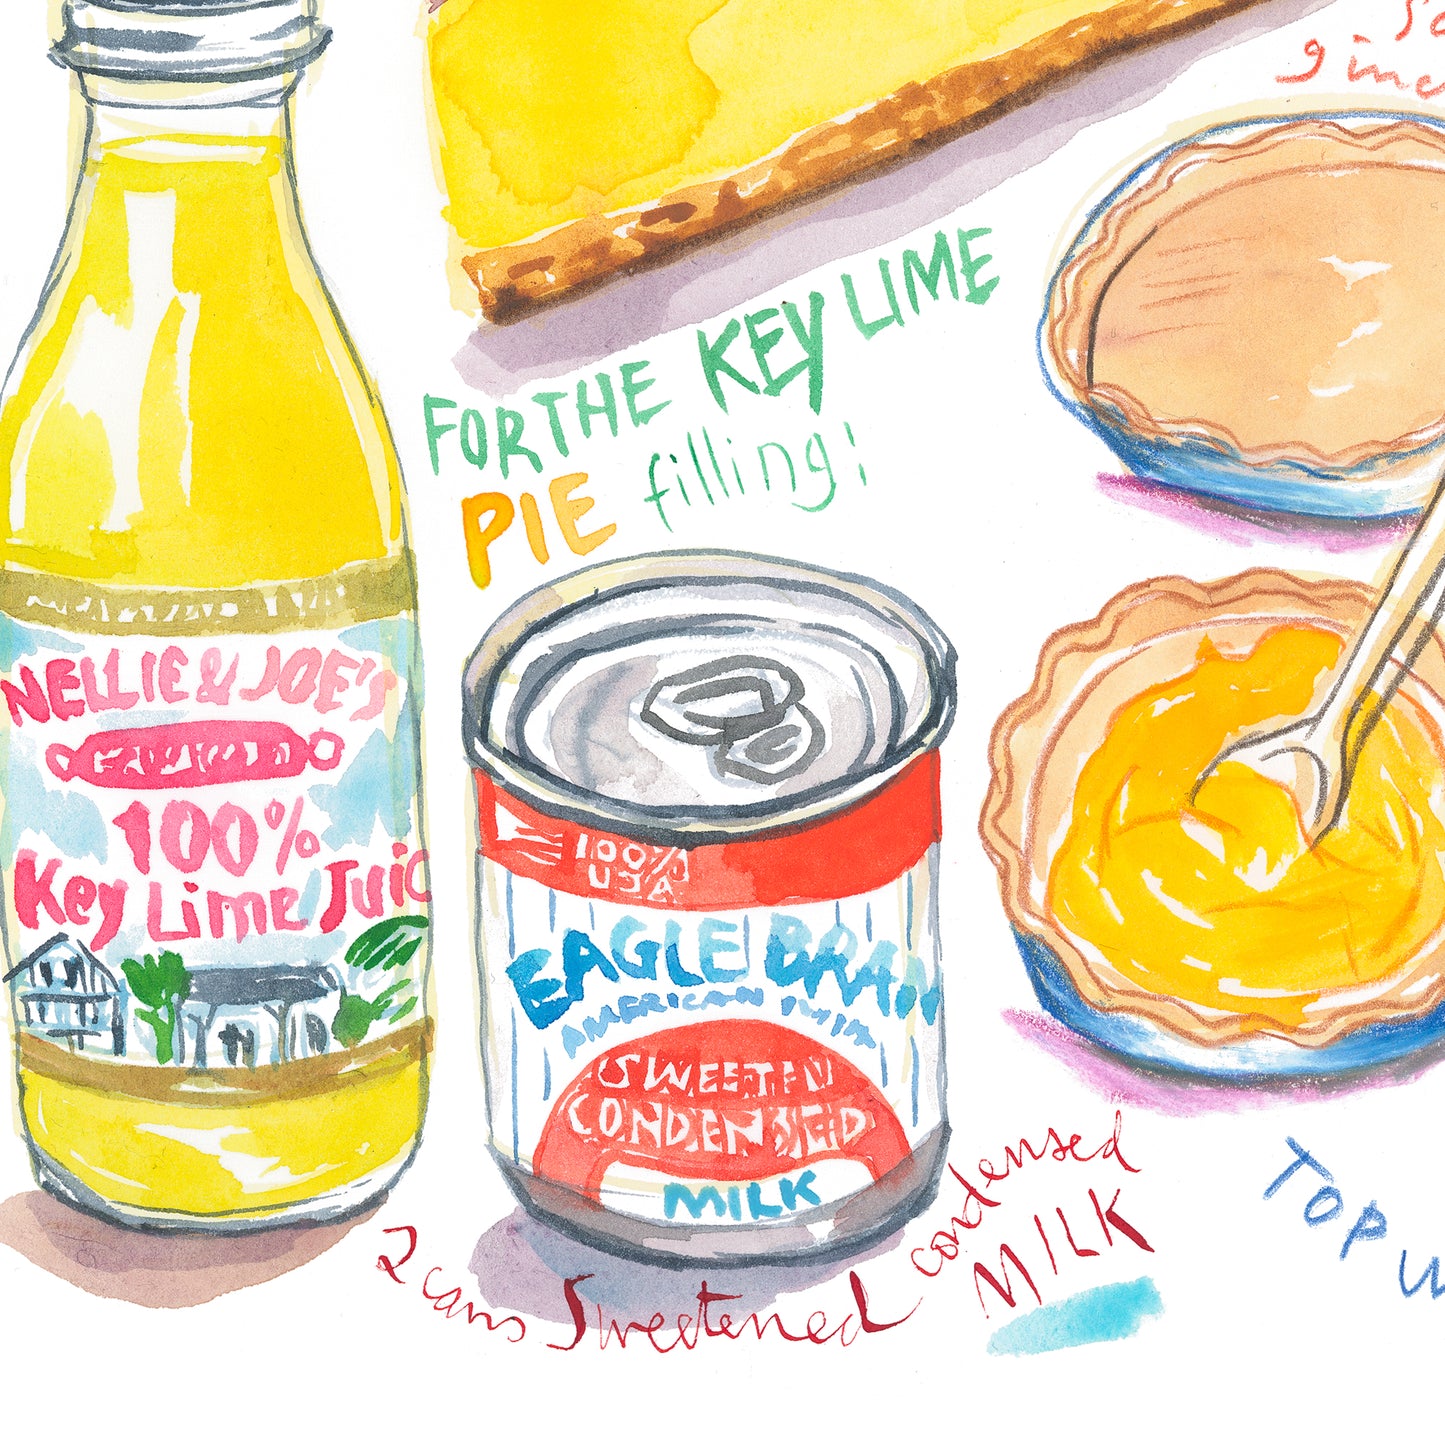 FOR THE KEY LIME
PIE filling:
NELLIE & JOE'S
100%
Key Lime Juic
100%
USA
EAGLE BRAN
AMERICAN
SWEETEN
CONDENSED
MILK
2 cans Sweetened condensed
MILK
TOP W